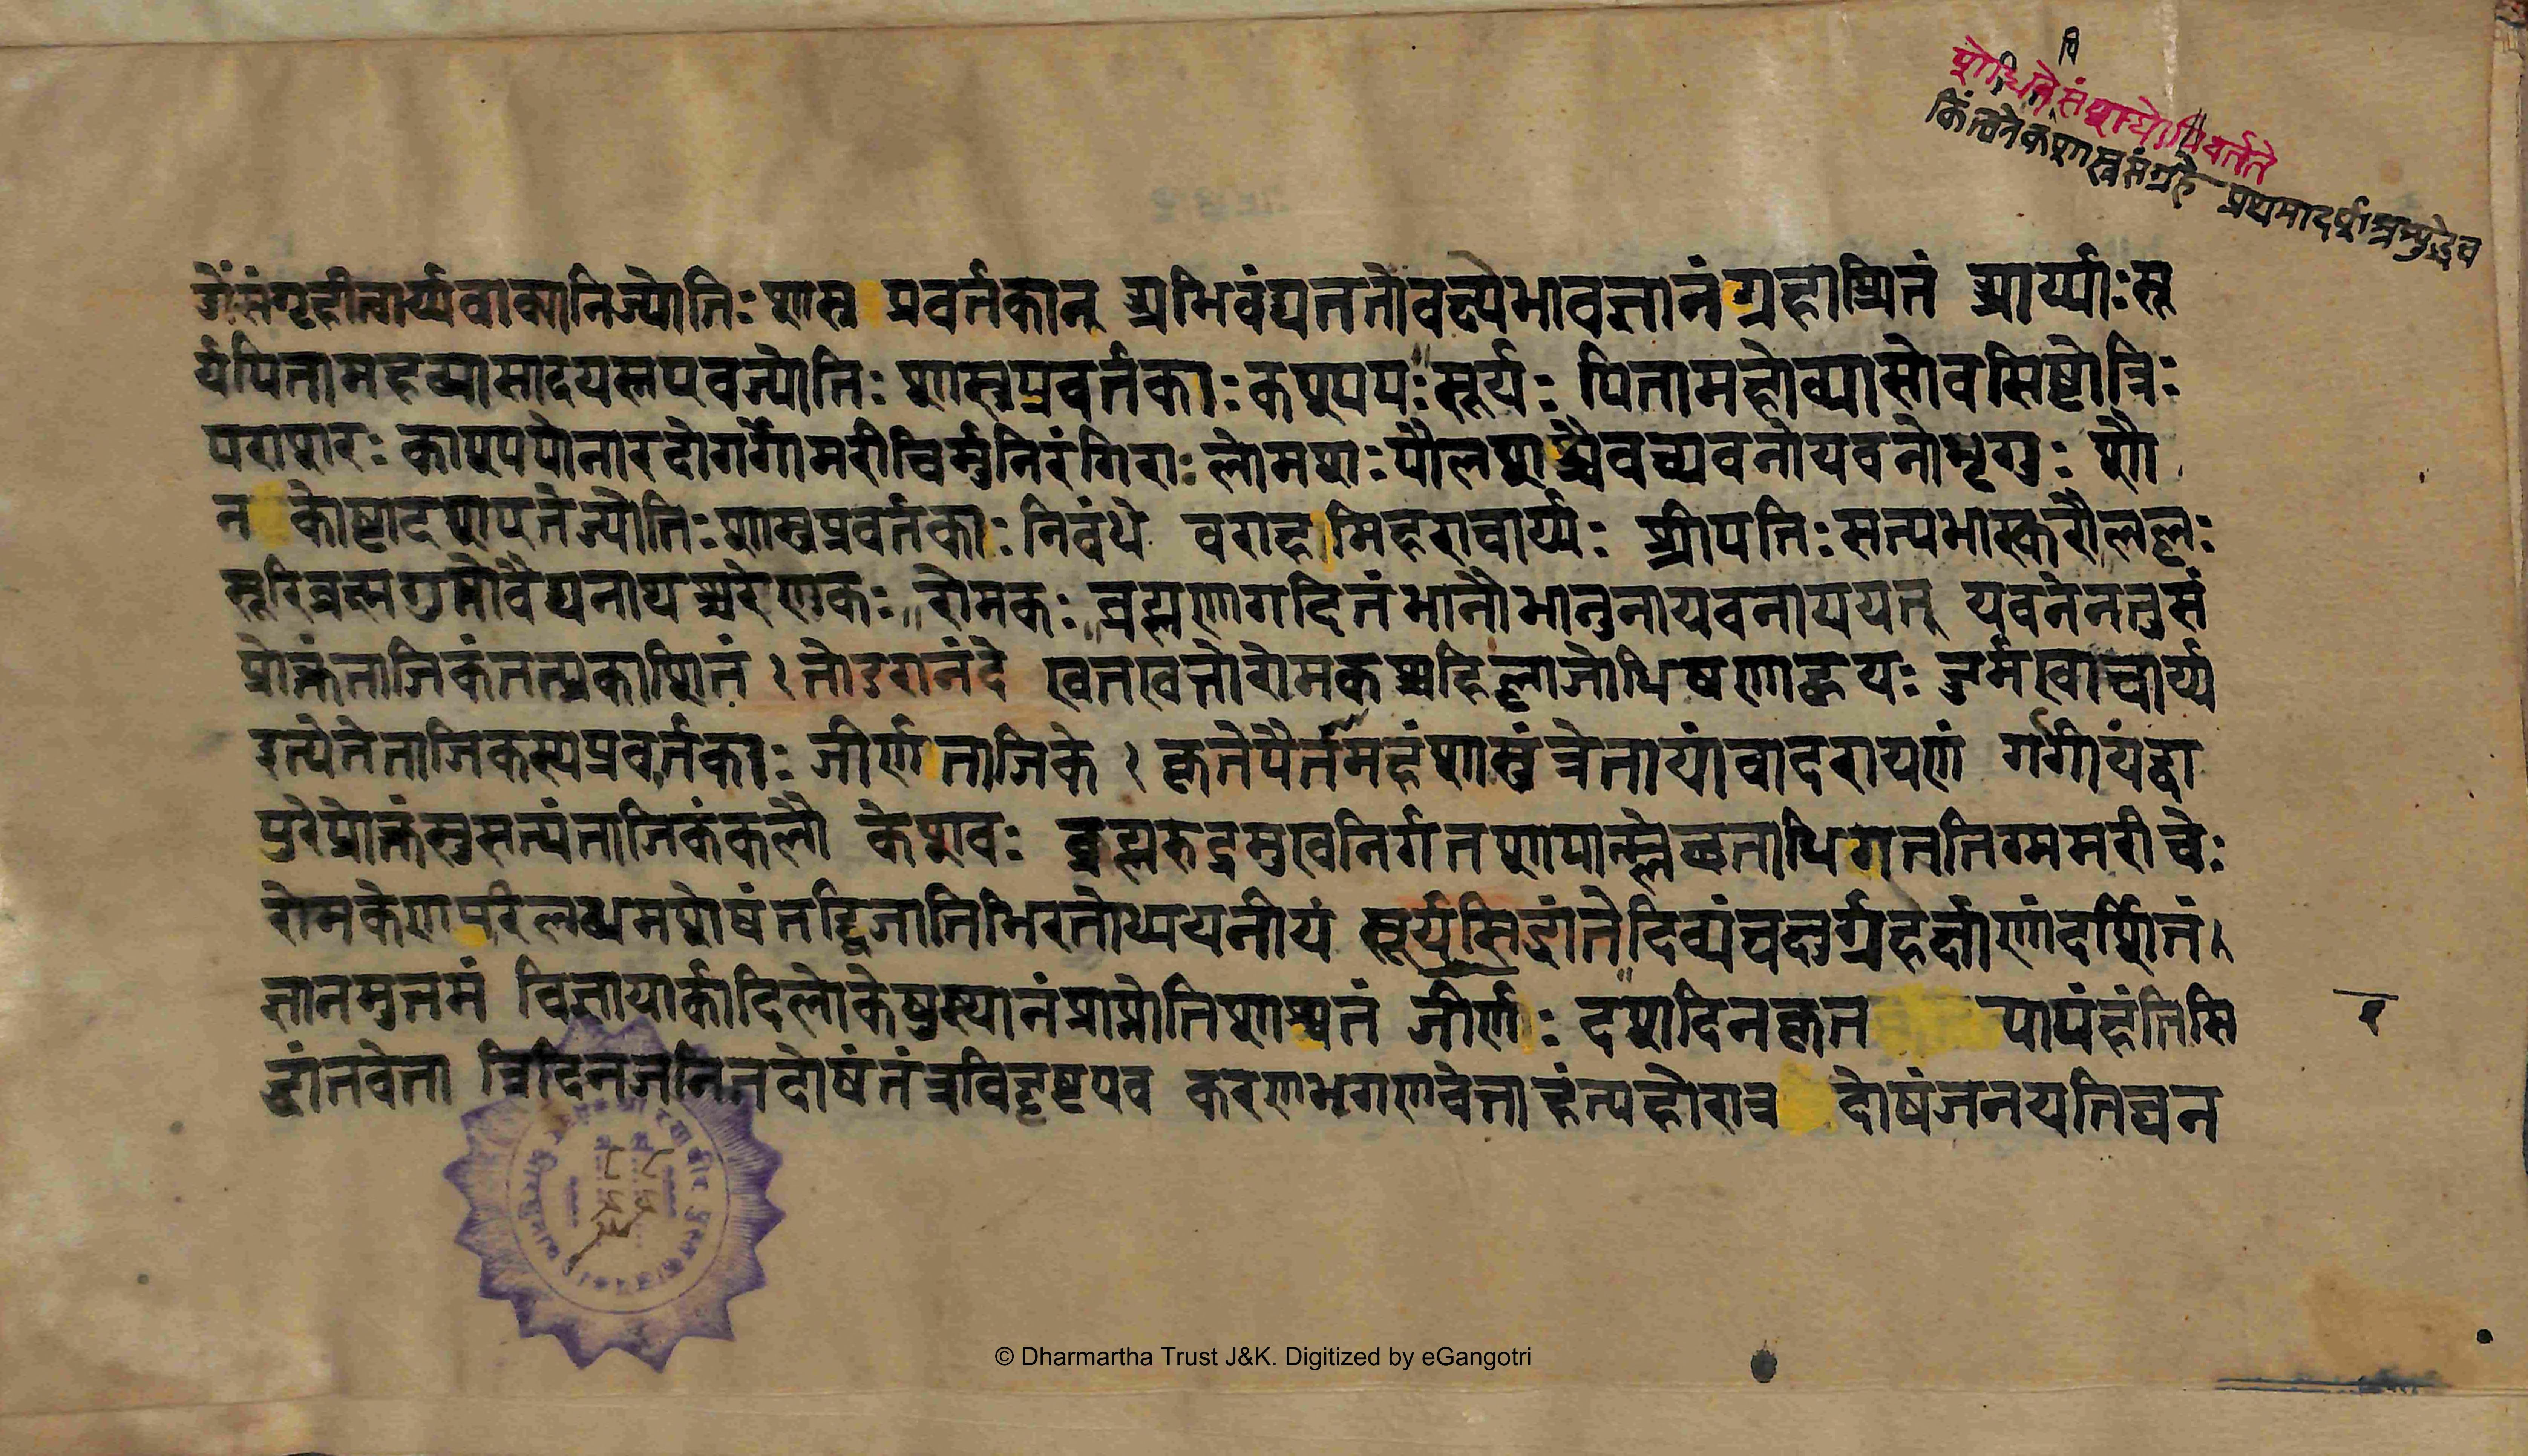 शोधितेसंपूर्णोपिवर्तते
किंत्वनेकशास्त्रसंग्रहे प्रथमादर्शा
र्जेसंगृहीत्वार्य्यवाक्यानिज्योतिःशास्त्र प्रवर्तकान् अभिवंद्यततोवक्ष्येभावज्ञानंग्रहाश्रितं आर्य्याःसू
र्यपितामहव्यासादयस्तएवज्योतिःशास्त्रप्रवर्तकाःकश्यपः सूर्यः पितामहोव्यासोवसिष्टोत्रिः
पराशरः काश्यपोनारदोगर्गोमरीचिर्मुनिरंगिराः लोमशःपौलशश्चैवच्यवनोयवनोभृगुः शौ
न कोष्टादशाएतेज्योतिःशास्त्रप्रवर्तकाः निबंधे वराहमिहराचार्य्यः श्रीपतिःसत्यभास्करौलल्लः
सूरिब्रह्मगुप्तौवैद्यनाथश्चरेणुकः रोमकः ब्रह्मणागदितंभानौभानुनायवनाययत् यवनेनतुसं
प्रोक्तंताजिकंतत्प्रकाशितं १ तोडरानंदे खतखत्तोरोमकश्चहिल्लाजोधिषणाह्वयः दुर्मुखाचार्य्य
इत्येतेताजिकस्यप्रवर्तकाः जीर्ण ताजिके १ कृतेपैतामहंशास्त्रंत्रेतायांवादरायणं गर्गीयंद्वा
पुरेप्रोक्तंसुसत्यंताजिकंकलौ केशवः ब्रह्मरुद्रमुखनिर्गतशापान्म्लेछताधिगततिग्ममरीचेः
रोमकेणपरिलब्धमशेषंतद्द्विजातिभिरतोध्ययनीयं सूर्यसिद्धांतेदिव्यंचक्षुर्ग्रहर्क्षाणांदर्शितं।
ज्ञानमुत्तमं विज्ञायार्कादिलोकेषुस्थानंप्राप्नोतिशाश्वतं जीर्णः दशदिनकृत पापंहंतिसि
द्धांतवेत्ता त्रिदिनजनितदोषंतंत्रविदृष्टएव करणभगणवेत्ताहंत्यहोरात्र दोषंजनयतिघन
१
© Dharmartha Trust J&K. Digitized by eGangotri